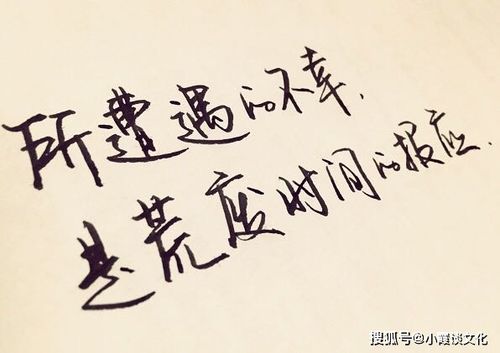 所遭遇的不幸.
是荒废时间的报应.
搜狐号@小霞谈文化